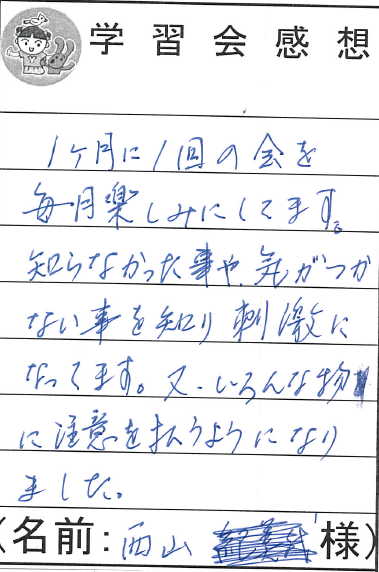 学習会感想
1ヶ月に1回の会を
毎月楽しみにしてます。
知らなかった事や、気がつか
ない事を知り刺激に
なってます。又、いろんな物
に注意を払うようになり
ました。
(名前:西山 様)